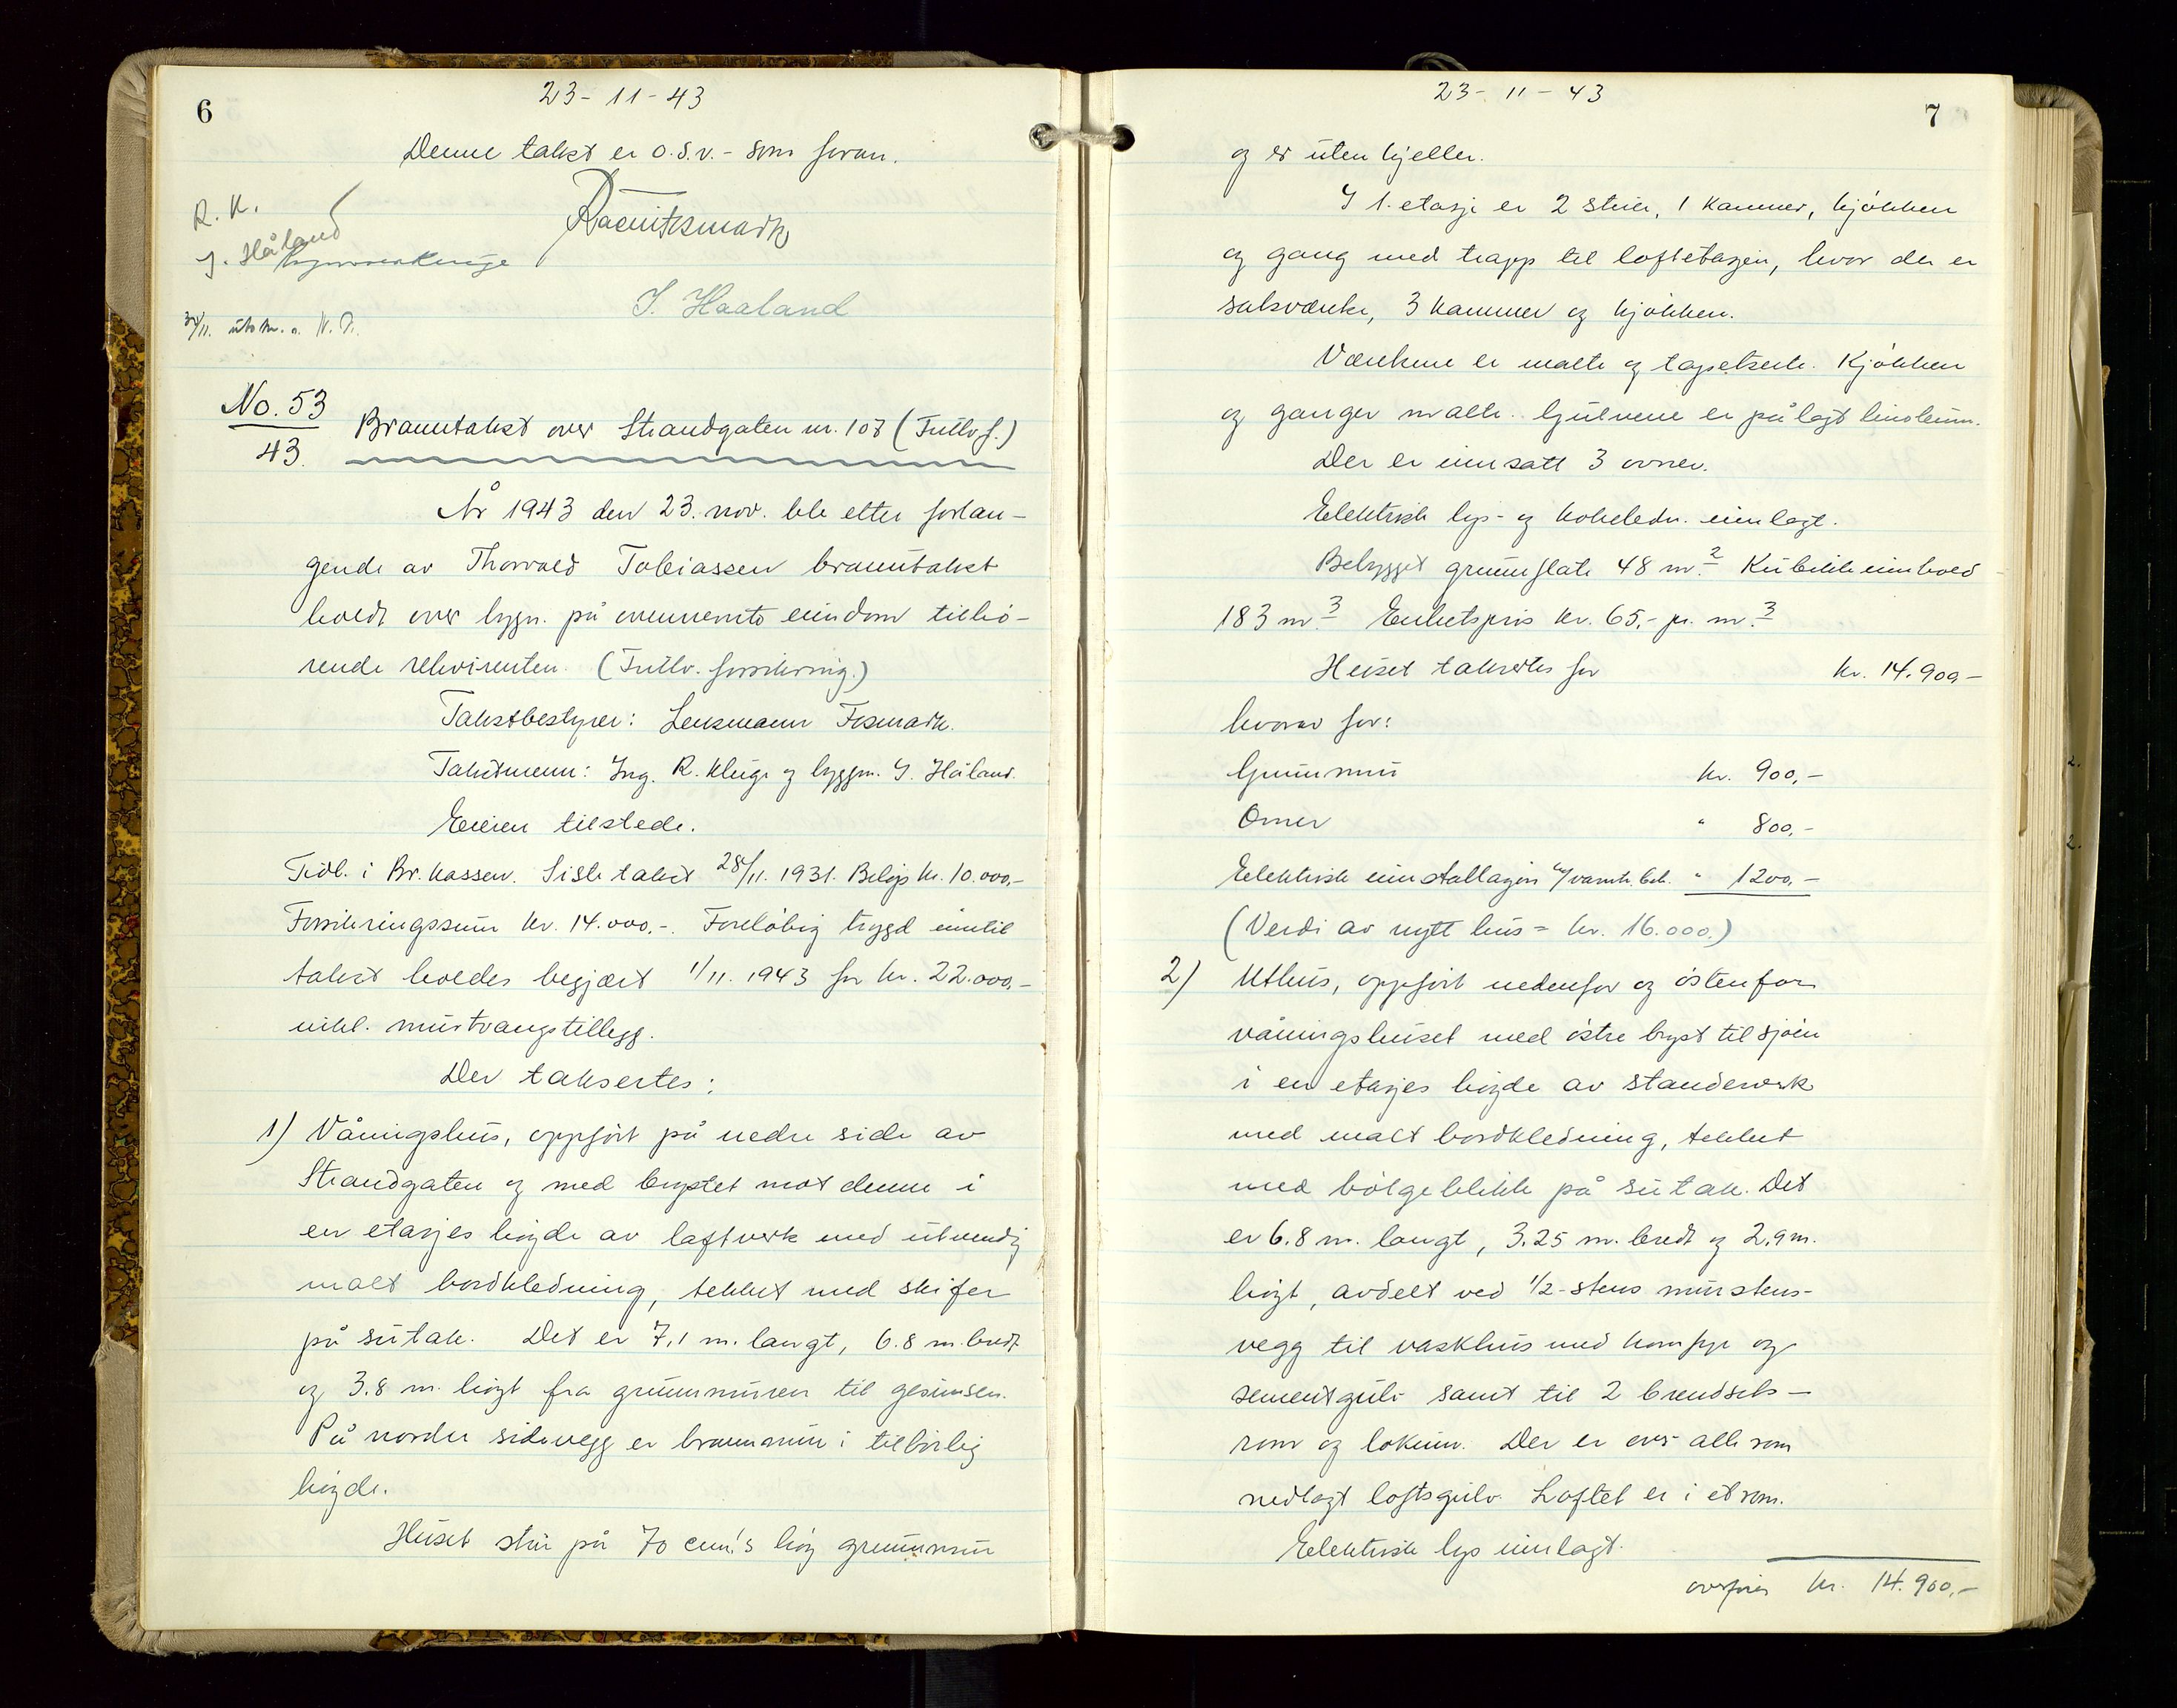 6
23-11-43
Denne takst er o.s.v. - som foran.
R. K.
J. Håland
J. Haaland
utskr. s. N. D.
No. 53
43.
Branntakst over Strandgaten nr. 108 (Fullv. f.)
År 1943 den 23. nov. ble etter forlan-
gende av Thorvald Tobiassen branntakst
holdt over bygn. på ovennevnte eiendom tilhö-
rende rekvirenten. (Fullv. forsikring.)
Takstbestyrer: Lensmann Fosmark.
Takstmenn: Ing. R. Kluge og byggm. J. Håland.
Eieren tilstede.
Tidl. i Br. kassen. Siste takst 28/11. 1931. Belöp kr. 10.000,-
Forsikringssum kr. 14.000.-. Foreløbig trygd inntil
takst holdes begjært 1/11. 1943 for kr. 22.000,-
inkl. murtvangstillegg.
Der taksertes:
1) Våningshus, oppfört på nedre side av
Strandgaten og med brystet mot denne i
en etasjes höyde av laftverk med utvendig
malt bordkledning, tekket med skifer
på sutak. Det er 7,1 m. langt, 6.8 m. bredt
og 3.8 m. höyt fra grunnmuren til gesimsen.
På nordre sidevegg er brannmur i tilbörlig
höyde.
Huset står på 70 cm's höy grunnmur
23-11-43
7
og er uten kjeller.
I 1. etasje er 2 stuer, 1 kammer, kjökken
og gang med trapp til loftetasjen, hvor der er
salsværelse, 3 kammer og kjökken.
Værelsene er malte og tapetserte. Kjökken
og ganger malte. Gulvene er pålagt linoleum.
Der er innsatt 3 ovner.
Elektrisk lys- og kokeledn. innlagt.
Bebygget grunnflate 48 m.2 Kubikkinnhold
183 m.3 Enhetspris kr. 65,- pr. m.3
Huset taksertes for kr. 14.900,-
hvorav for:
Grunnmur kr. 900,-
Ovner " 800,-
Elektrisk installasjon m/varmtv.beh. " 1200,-
(Verdi av nytt hus = kr. 16.000.)
2) Uthus, oppfört nedenfor og östenfor
våningshuset med östre bryst til sjöen
i en etasjes höyde av standerverk
med malt bordkledning, tekket
med bölgeblikk på sutak. Det
er 6.8 m. langt, 3.25 m. bredt og 2.9 m.
höyt, avdelt ved 1/2-stens murstens-
vegg til vaskhus med komfyr og
sementgulv samt til 2 brendsels-
rom og lokum. Der er over alle rom
nedlagt loftsgulv. Loftet er i et rom.
Elektrisk lys innlagt.
overföres kr. 14.900,-